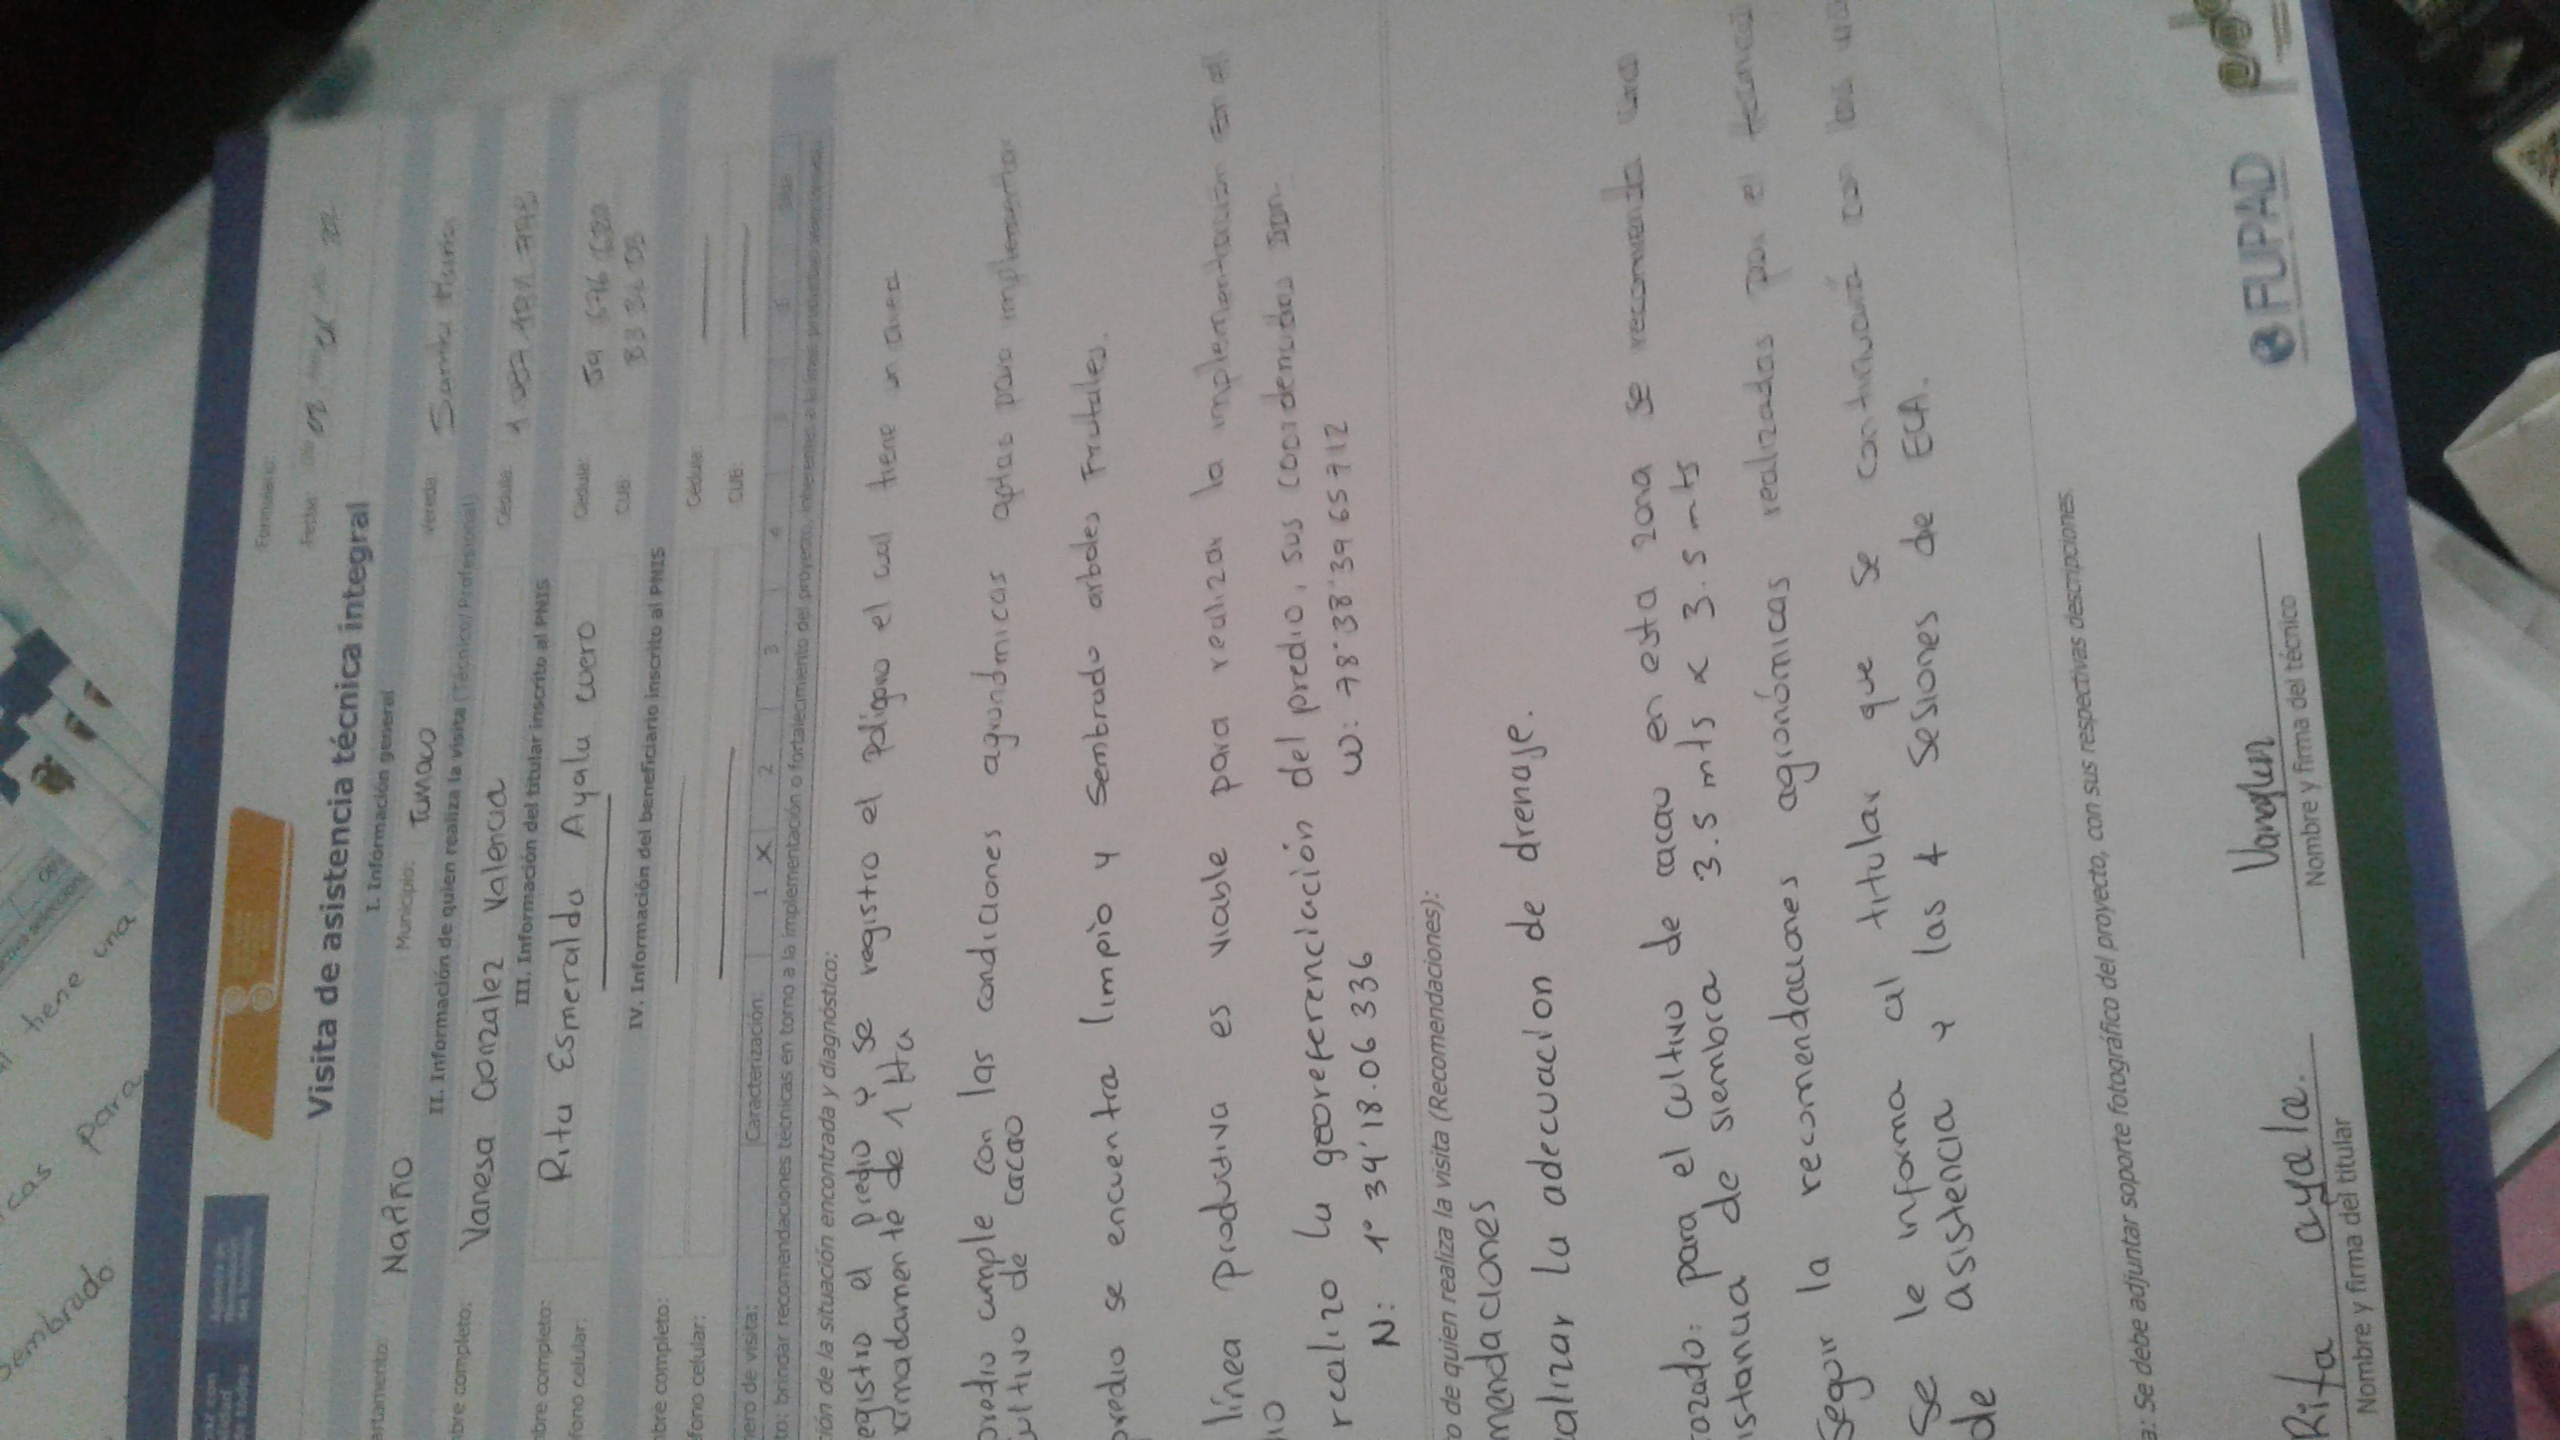 Formulario:
Visita de asistencia técnica integral
Fecha:
I. Información general
Nariño
Municipio: Tumaco
Vereda: Santa María
II. Información de quien realiza la visita (Técnico/Profesional)
bre completo: Vanesa Gonzalez Valencia
Cédula:
III. Información del titular inscrito al PNIS
bre completo: Rita Esmeralda Ayala cuero
Cédula: 59 676 680
fono celular:
CUB:
IV. Información del beneficiario inscrito al PNIS
bre completo:
Cédula:
fono celular:
CUB:
nero de visita: Caracterización: 1 X 2 3 4
to: brindar recomendaciones técnicas en torno a la implementación o fortalecimiento del proyecto, inherentes a la línea productiva
ción de la situación encontrada y diagnóstico:
registro el predio y se registro el polígono el cual tiene un area
ximadamente de 1 Ha
predio cumple con las condiciones agronómicas aptas para implementar
cultivo de cacao
predio se encuentra limpio y sembrado arboles Frutales.
línea productiva es viable para realizar la implementación en el
io
realizo la georeferenciación del predio, sus coordenadas son
N: 1° 34' 18.06 336 W: 78° 38' 39 65 712
o de quien realiza la visita (Recomendaciones):
mendaciones
alizar la adecuacion de drenaje.
razado: para el cultivo de cacao en esta zona se recomienda una
istancia de siembra 3.5 mts x 3.5 mts
Seguir la recomendaciones agronómicas realizadas por el tecnico
Se le informa al titular que se continuará con las
de asistencia y las 4 sesiones de ECA.
a: Se debe adjuntar soporte fotográfico del proyecto, con sus respectivas descripciones.
Rita ayala.
Nombre y firma del titular
Nombre y firma del técnico
FUPAD
tiene una
cas para
Sembrado